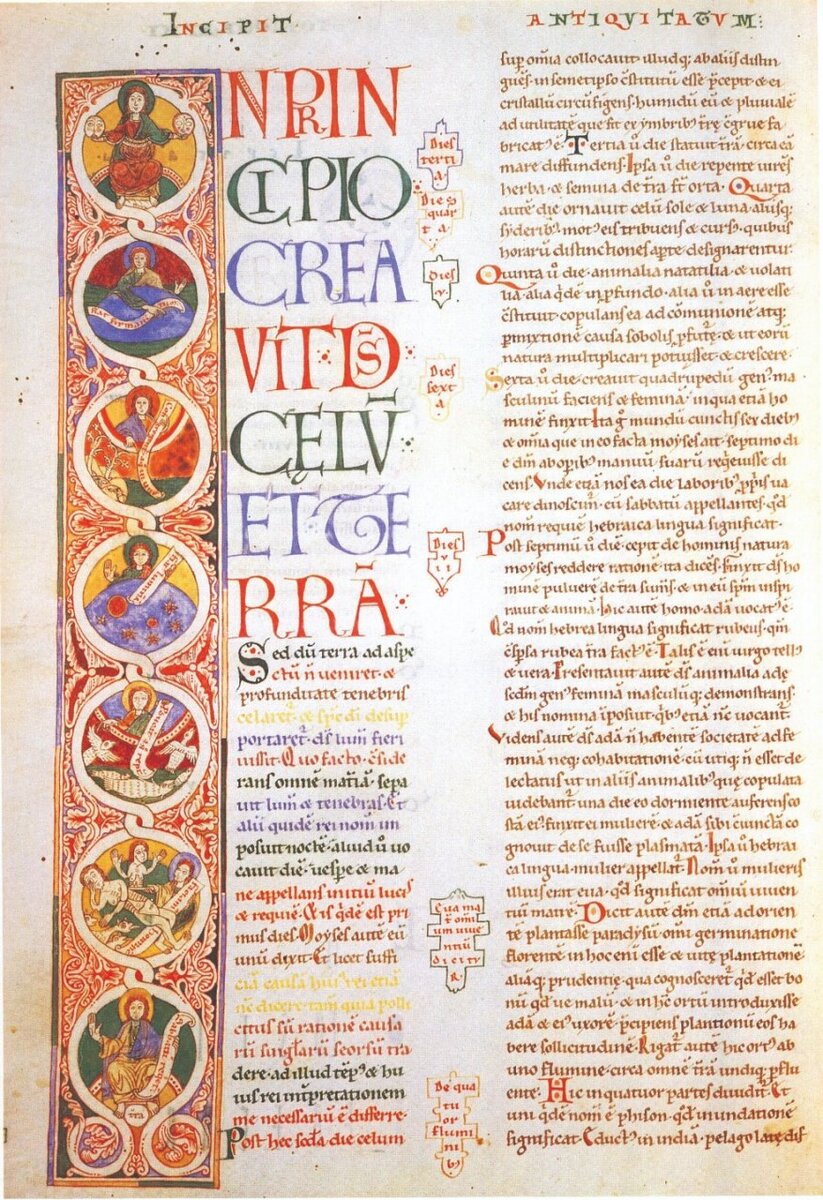 INCIPIT
ANTIQVITATVM:
N PRIN
CIPIO
CREA
VIT DS
CĘLV̄
ET TE
RRĀ
Sed dū terra ad aspe
ctū n̄ veniret · &
profunditate tenebris
celaret · & sp̄c dī desup
portaret · ds̄ lum̄ fieri
iussit · Quo facto · c̄side
rans omnē mat̄iā · sepa
uit lum̄ & tenebras · Et
alii quidē rei nom̄ in
posuit noctē · aliud ū uo
cauit diē · uespe & ma
ne appellans initiū lucis
& requiē · & is qd̄e est pri
mus dies · Moyses autē eū
unū dixit · Et licet suffi
ciā causā hui᾿ rei etiā
nc̄ dicere · tam quia polli
citus sū rationē causa
rū singlarū seorsū tra
dere · ad illud tēp᾿ & hu
ius rei int̄pretationem
me necessariū ē differre ·
Post hec sc̄da die celum
Dies
terti
a
Dies
quar
ta
Dies
v
Dies
sext
a
Dies
vii
Eua ma
t̄ omī
um uiue
ntiū
dicitu
R
De qua
tu
or
flumi
ni
b᾿
sup̄ om̄ia collocauit illudq; ab aliis distin
guēs · in semetipso c̄stitutū esse p̄cepit · & ei
cristallū circūfigens · humidū eū & pluuialē
ad utilitatē que fit ex ymbrib᾿ t̄rę c̄grue fa
bricat᾿ ē · Tertia ū die statuit t̄rā · circa eā
mare diffundens · Ipsa ū die repente uires
herbę & semina de t̄ra st̄ orta · Quarta
autē die ornauit celū sole & luna · aliisq;
syderib᾿ · mot᾿ eis tribuens & curs᾿ · quibus
horarū distinctiones apte designarentur ·
Quinta ū die animalia natatilia & uolati
lia · alia qd̄e in p̄fundo · alia ū in aere esse
c̄stituit · copulans ea ad cōmunionē atq;
p̄mixtionē causa sobolis p̄ferēdę · & ut eorū
natura multiplicari potuisset & crescere ·
Sexta ū die creauit quadrupedū gen᾿ · ma
sculinū faciens & feminā · in qua etiā ho
minē finxit · Ita g mundū cunctis sex dieb᾿
& omia que in eo facta moyses ait · septimo di
e dm̄ ab op̄ib᾿ manuū suarū reqieuisse di
cens · Vnde etiā nos ea die laborib᾿ p̄priis ua
care dinoscim᾿ · eū sabbatū appellantes · qd̄
nom̄ requiē hebraica lingua significat ·
Post septimū ū diē · cepit de hominis natura
moyses reddere rationē · ita dicēs · Finxit ds̄ ho
minē puluere de t̄ra sumēs · & in eū spm̄ inspi
rauit & animā · hic autē homo adā uocat᾿ ē ·
Qd̄ nom̄ hebrea lingua significat rubeus · qm̄
c̄spsa rubea t̄ra fact᾿ ē · Talis ē eni uirgo tell᾿
& uera · Presentauit autē ds̄ animalia adę
sedm̄ gen᾿ feminā masculūq; demonstrans
& his nomina iposuit · qb᾿ etiā nc̄ uocant᾿ ·
Videns autē ds̄ adā n̄ habentē societatē ad fe
minā neq; cohabitationē · cū utiq; n̄ esset de
lectatus ut in aliis animalib᾿ que copulata
uidebant᾿ · una die eo dormiente auferens co
stā ei᾿ · finxit ei muliere · & adā sibi cūincta co
gnouit de se fuisse plasmatā · Ipsa ū hebrai
ca lingua mulier appellat᾿ · Nom̄ ū mulieris
illius erat eua · qd̄ significat omiū uiuen
tiū matrē · Dicit autē dm̄ etiā ad orien
tē plantasse paradysū om̄i germinatione
florentē · in hoc eni esse & uitę plantationē
aliāq; prudentię · qua cognosceret qd̄ esset bo
nū qd̄ ue malū · & in hc̄ ortū introduxisse
adā & ei᾿ uxorē · p̄cipiens plantionū eos ha
bere sollicitudinē · Rigat᾿ autē hic ort᾿ ab
uno flumine · circa omnē t̄rā undiq; p̄flu
ente · Hic in quatuor partes diuidit᾿ · Et
uni qd̄e nom̄ ē phison · qd̄ inundationē
significat · Educt᾿ in indiā · pelago late dif